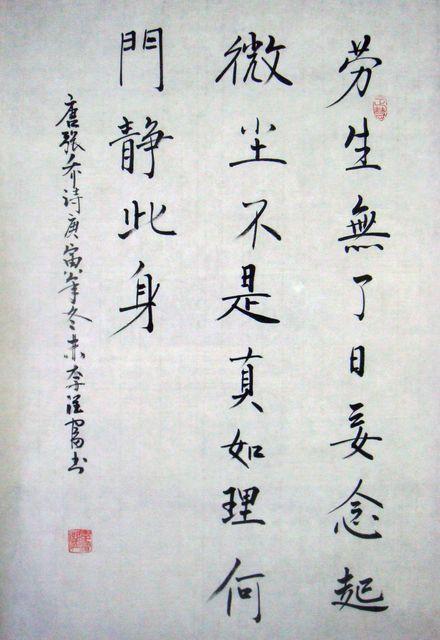 劳生無了日妄念起
微尘不是真如理何
門静此身
唐张乔诗庚寅年冬末李富书